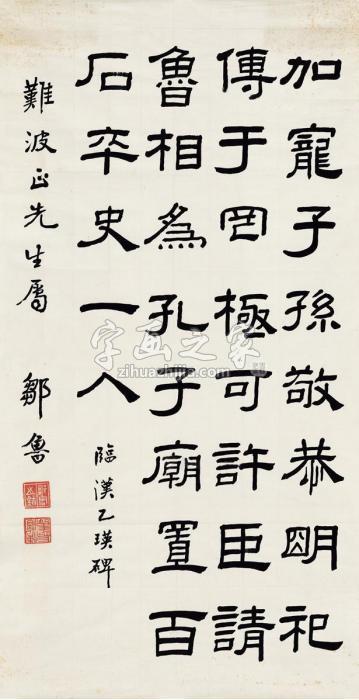 加寵子孫敬恭明祀
傳于罔極可許臣請
魯相為孔子廟置百
石卒史一人
臨漢乙瑛碑
難波正先生屬
鄒魯
字画之家
zihuazhijia.com